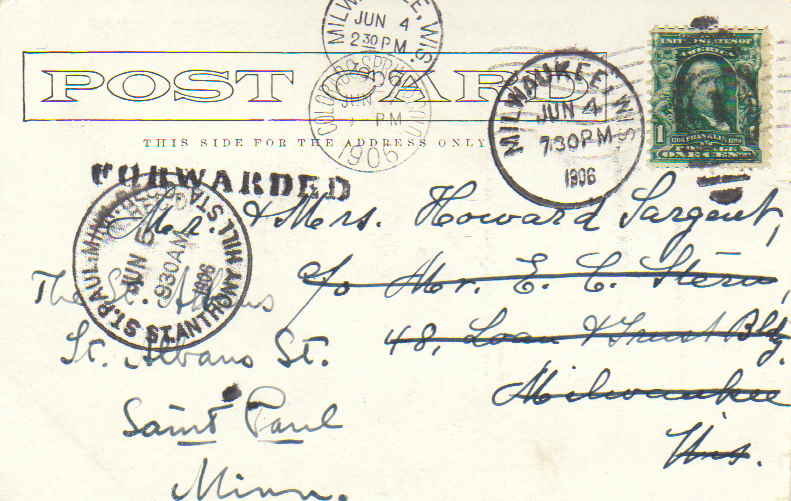 MILWAUKEE, WIS.
JUN 4
2 30 PM
1906
POST CARD
COLORADO
JUN
PM
1906
MILWAUKEE, WIS.
JUN 4
7 30 PM
1906
UNITED STATES OF
AMERICA
1
POSTAGE
ONE CENT
THIS SIDE FOR THE ADDRESS ONLY
FORWARDED
ST. PAUL, MINN.
REC'D
JUN 5
9 30 AM
1906
ST. ANTHONY HILL STA.
Mr. & Mrs. Howard Sargent,
c/o Mr. E. C. Stern,
48, Loan & Trust Bldg.
Milwaukee
Wis.
The St. Albans
St. Albans St.
Saint Paul
Minn.